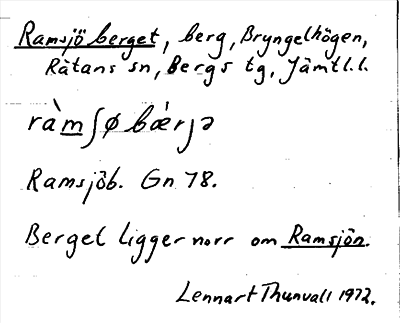 Ramsjö berget, berg, Bryngelhögen,
Rätans sn, Bergs tg, Jämtl.l.
ràmʃøbǽrjə
Ramsjöb. Gn 78.
Berget ligger norr om Ramsjön.
Lennart Thunvall 1972.